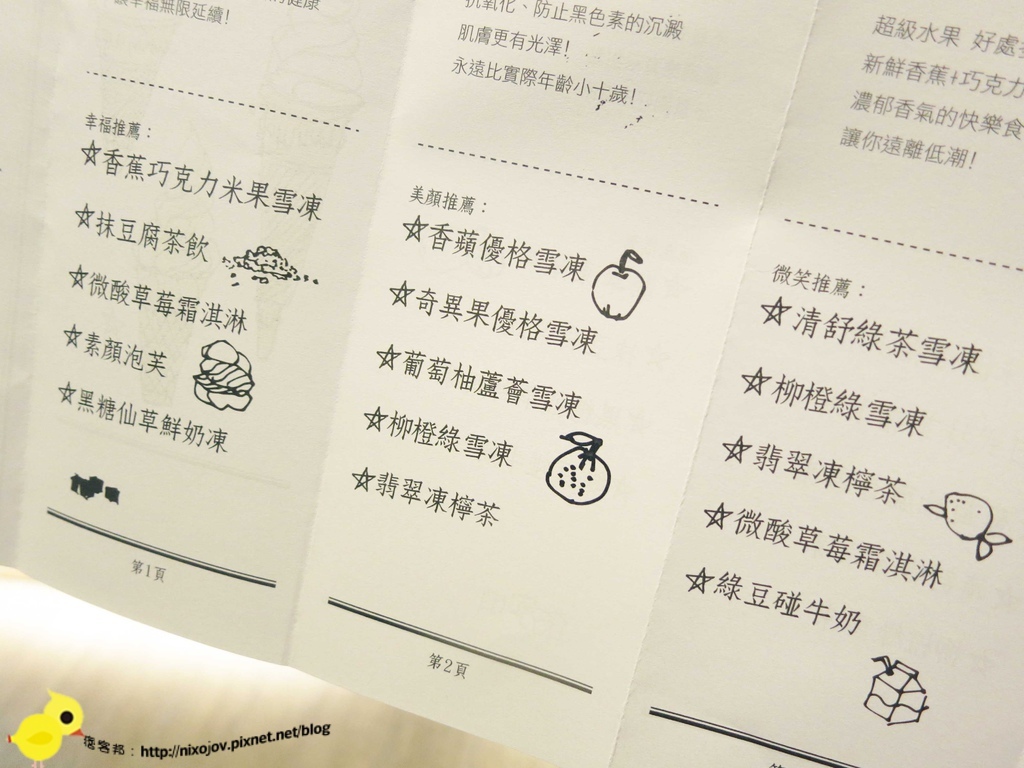 讓幸福無限延續!
幸福推薦：
☆香蕉巧克力米果雪凍
☆抹豆腐茶飲
☆微酸草莓霜淇淋
☆素顏泡芙
☆黑糖仙草鮮奶凍
第1頁
抗氧化、防止黑色素的沉澱
肌膚更有光澤!
永遠比實際年齡小十歲!
美顏推薦：
☆香蘋優格雪凍
☆奇異果優格雪凍
☆葡萄柚蘆薈雪凍
☆柳橙綠雪凍
☆翡翠凍檸茶
第2頁
超級水果 好處
新鮮香蕉+巧克力
濃郁香氣的快樂食
讓你遠離低潮!
微笑推薦：
☆清舒綠茶雪凍
☆柳橙綠雪凍
☆翡翠凍檸茶
☆微酸草莓霜淇淋
☆綠豆碰牛奶
痞客邦：http://nixojov.pixnet.net/blog